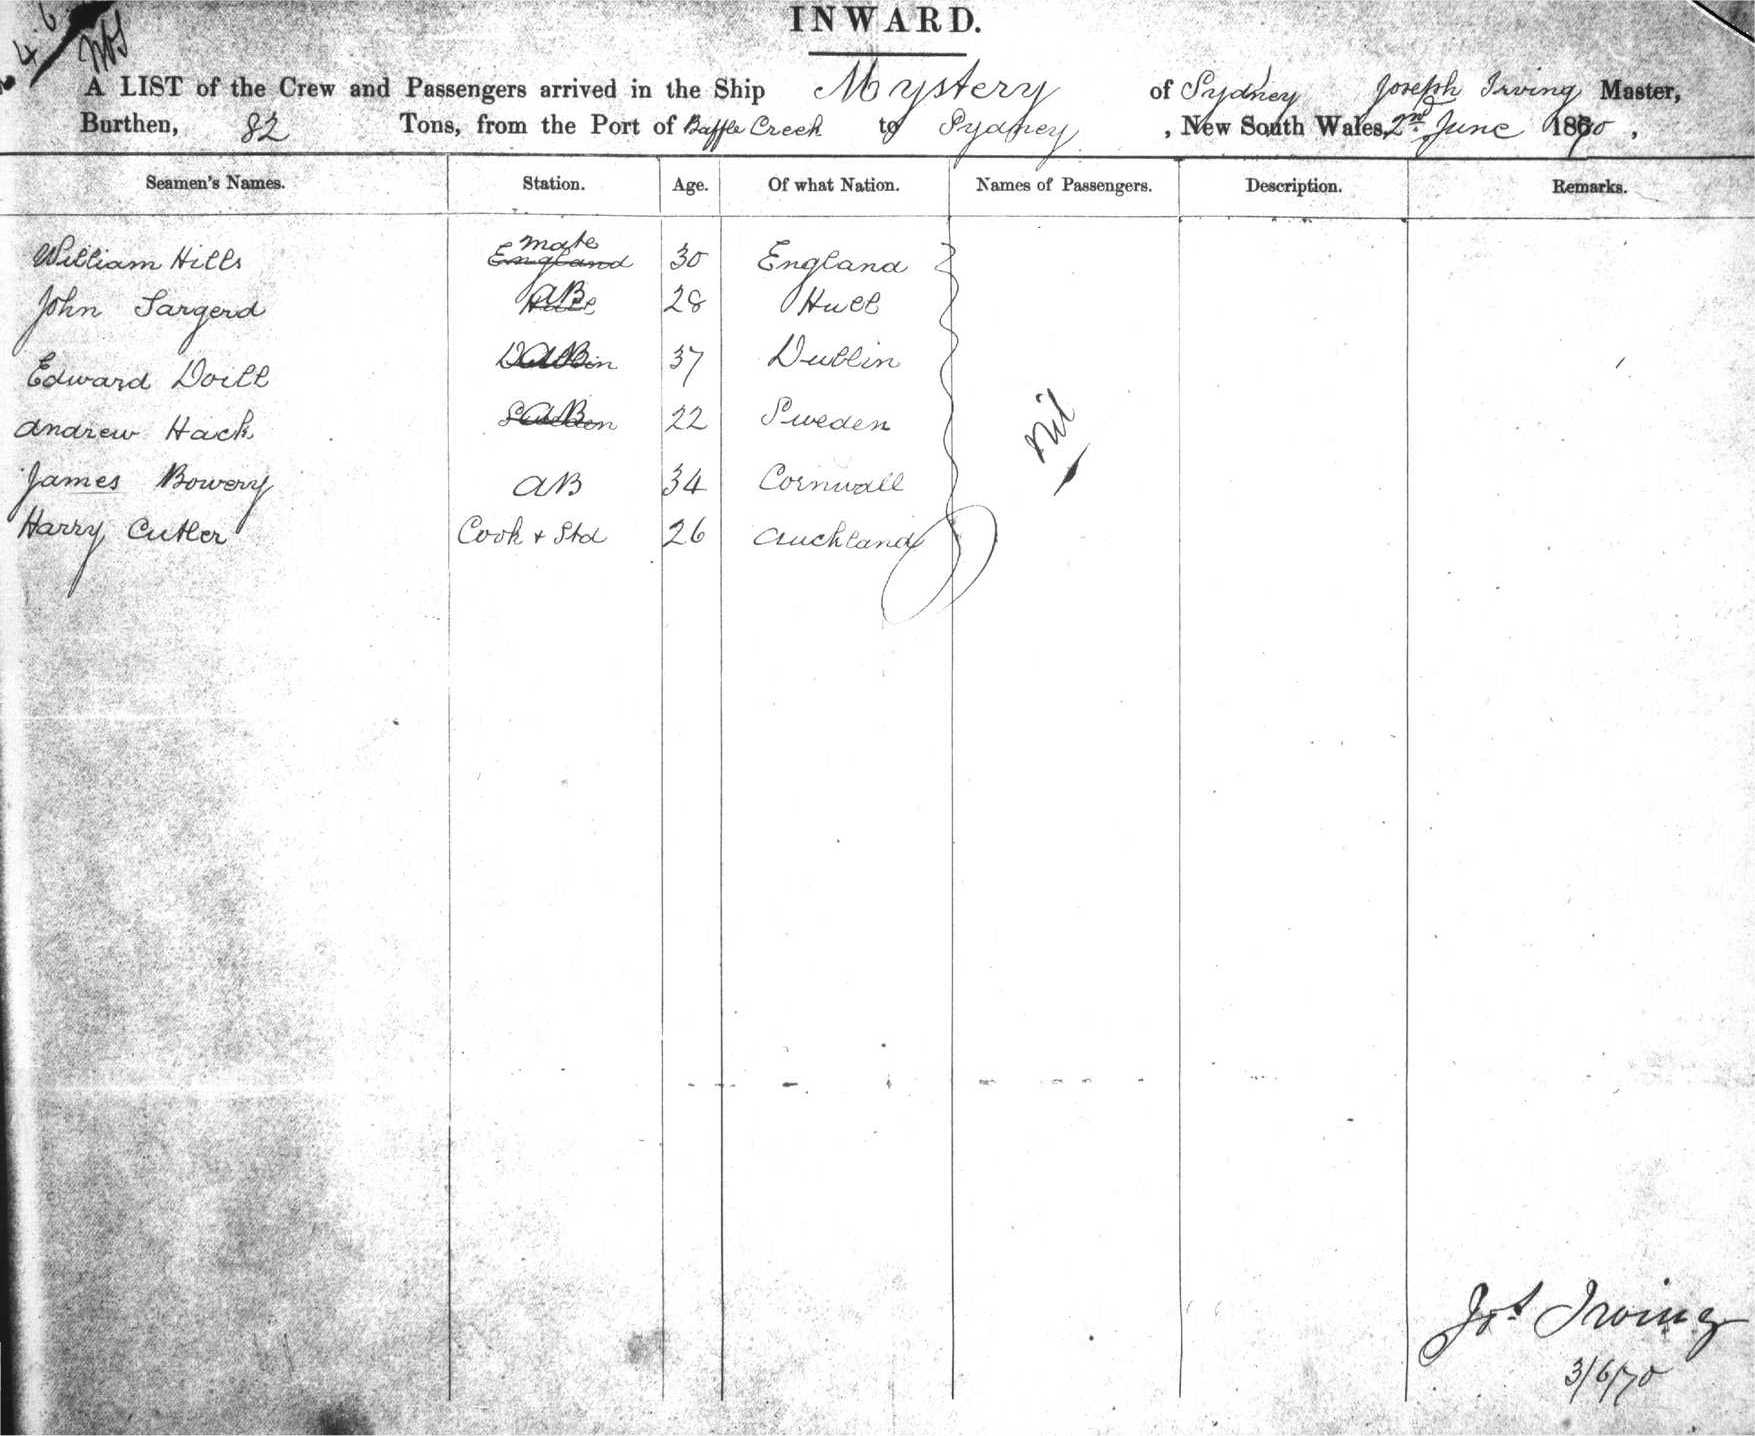 INWARD.
A LIST of the Crew and Passengers arrived in the Ship Mystery of Sydney Joseph Irving Master,
Burthen, 82 Tons, from the Port of Baffle Creek to Sydney, New South Wales, 2nd June 1870,
Seamen's Names. Station. Age. Of what Nation. Names of Passengers. Description. Remarks.
William Hills England mate 30 England
John Sargerd Hull aB 28 Hull
Edward Doill Dublin aB 37 Dublin
Andrew Hack Sweden aB 22 Sweden
nil
James Bowery aB 34 Cornwall
Harry Cutler Cook + Std 26 Auckland
Jos Irving
3/6/70